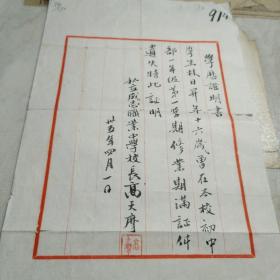 914
學歷證明書
學生林日昇年十六歲曾在本校初中
部一年級第一學期修業期滿証件
遺失特此証明
私立成志職業中學校長高天席
卅五年四月一日